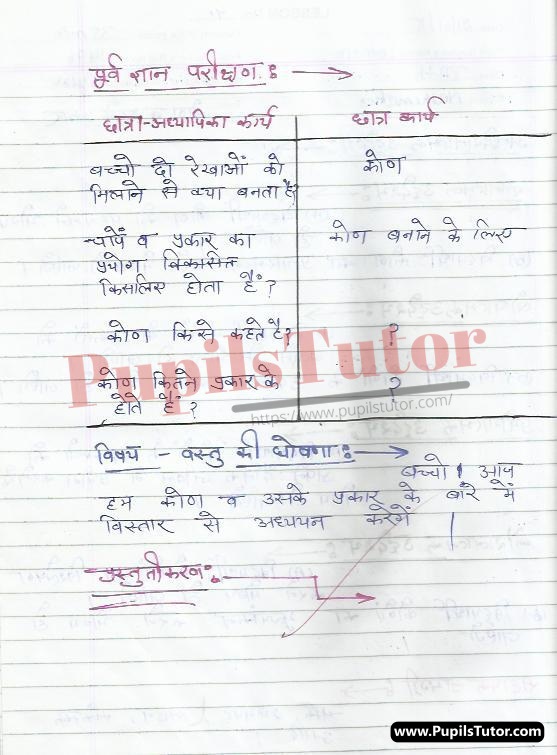 पूर्व ज्ञान परीक्षण :
छात्रा-अध्यापिका कार्य
छात्र कार्य
बच्चो दो रेखाओं को
मिलाने से क्या बनता है?
कोण
चापें व प्रकार का
प्रयोग विकासित
किसलिए होता है ?
कोण बनाने के लिए
कोण किसे कहते है?
?
कोण कितने प्रकार के
होते है ?
?
PupilsTutor
https://www.pupilstutor.com
विषय - वस्तु की घोषणा :
बच्चो । आज
हम कोण व उसके प्रकार के बारे में
विस्तार से अध्ययन करेगें ।
प्रस्तुतीकरण :
www.PupilsTutor.com